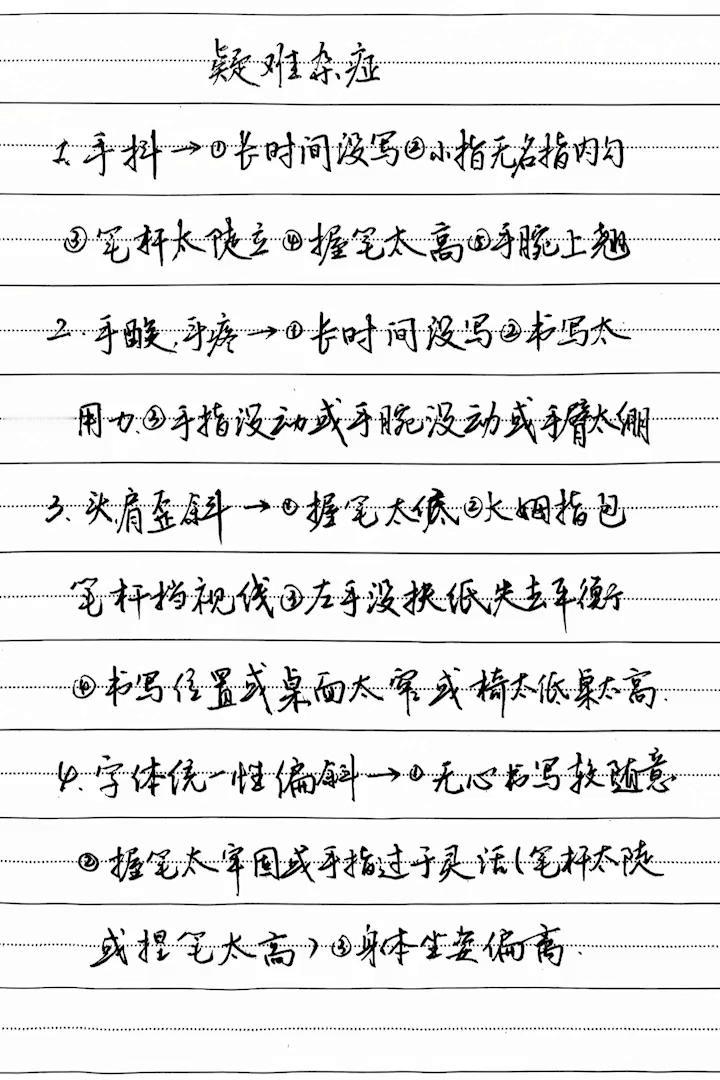 疑难杂症
1、手抖→①长时间没写②小指无名指内勾
③笔杆太陡立④握笔太高⑤手腕上翘
2.手酸、手疼→①长时间没写②书写太
用力③手指没动或手腕没动或手臂太绷
3、头肩歪斜→①握笔太低②大姆指包
笔杆挡视线③左手没扶纸失去平衡
④书写位置或桌面太窄或椅太低桌太高.
4、字体统一性偏斜→①无心书写较随意
②握笔太牢固或手指过于灵活(笔杆太陡
或捏笔太高)③身体坐姿偏离.